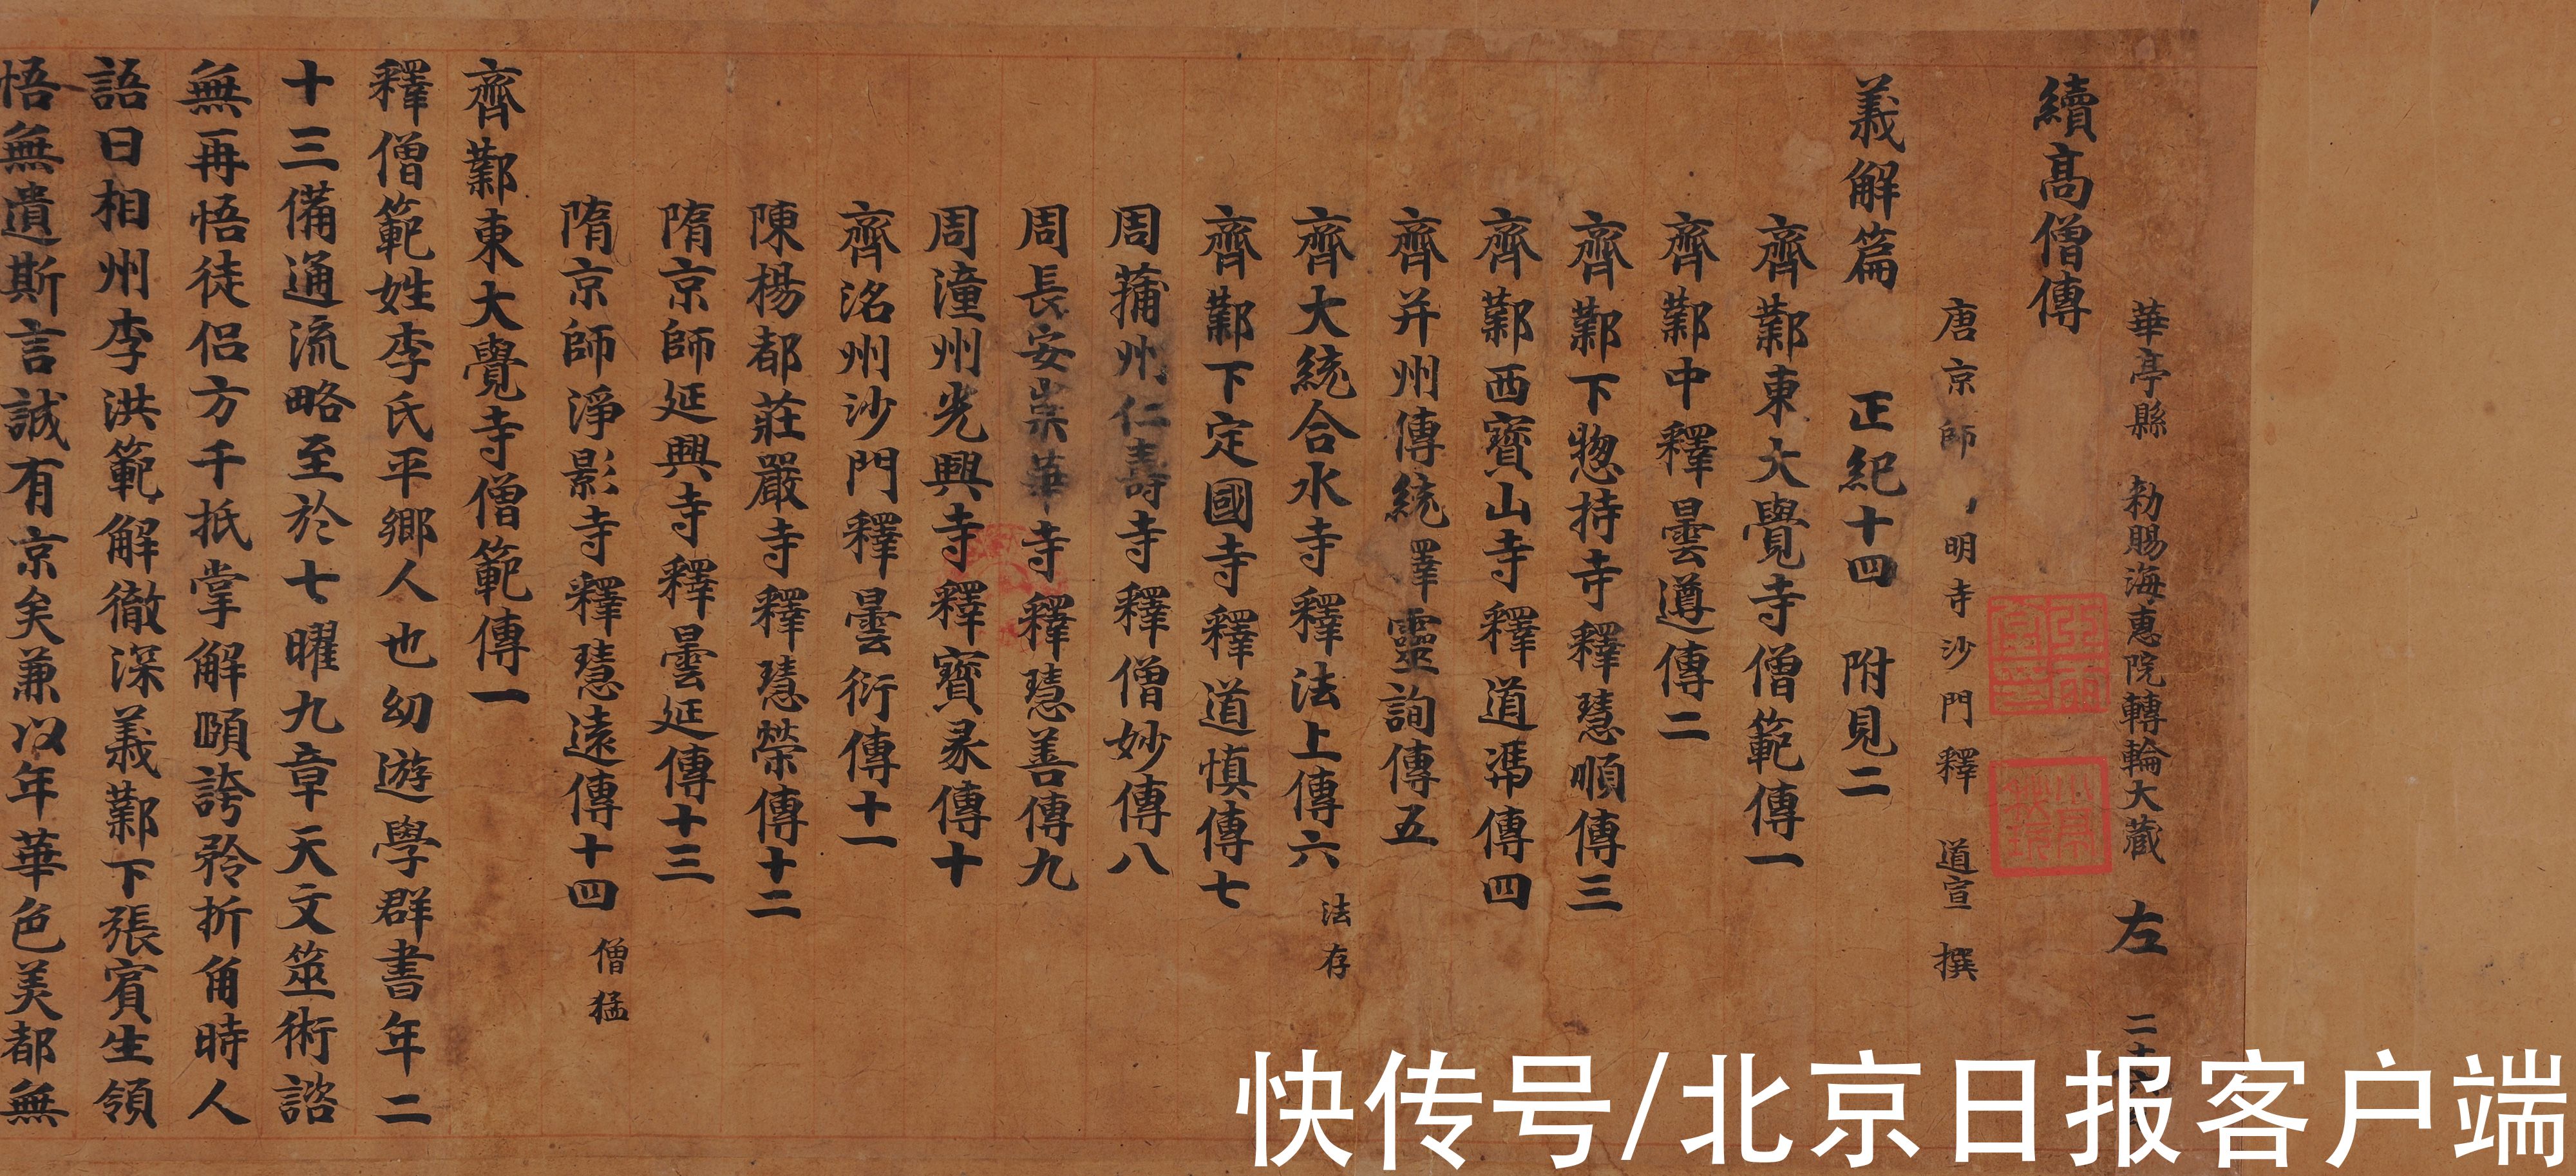 華亭縣 勑賜海惠院轉輪大藏 左
續高僧傳
唐京師 明寺沙門釋 道宣 撰
義解篇 正紀十四 附見二
齊鄴東大覺寺僧範傳一
齊鄴中釋曇遵傳二
齊鄴下惣持寺釋慧順傳三
齊鄴西寶山寺釋道憑傳四
齊并州傳統釋靈詢傳五
齊大統合水寺釋法上傳六 法存
齊鄴下定國寺釋道慎傳七
周蒲州仁壽寺釋僧妙傳八
周長安崇華寺釋慧善傳九
周潼州光興寺釋寶彖傳十
齊洺州沙門釋曇衍傳十一
陳楊都莊嚴寺釋慧榮傳十二
隋京師延興寺釋曇延傳十三
隋京師淨影寺釋慧遠傳十四 僧猛
齊鄴東大覺寺僧範傳一
釋僧範姓李氏平鄉人也幼遊學群書年二
十三備通流略至於七曜九章天文筮術諮
無再悟徒侣方千抵掌解頤誇矜折角時人
語曰相州李洪範解徹深義鄴下張賓生領
悟無遺斯言誠有京矣兼以年華色美都無
快传号/北京日报客户端